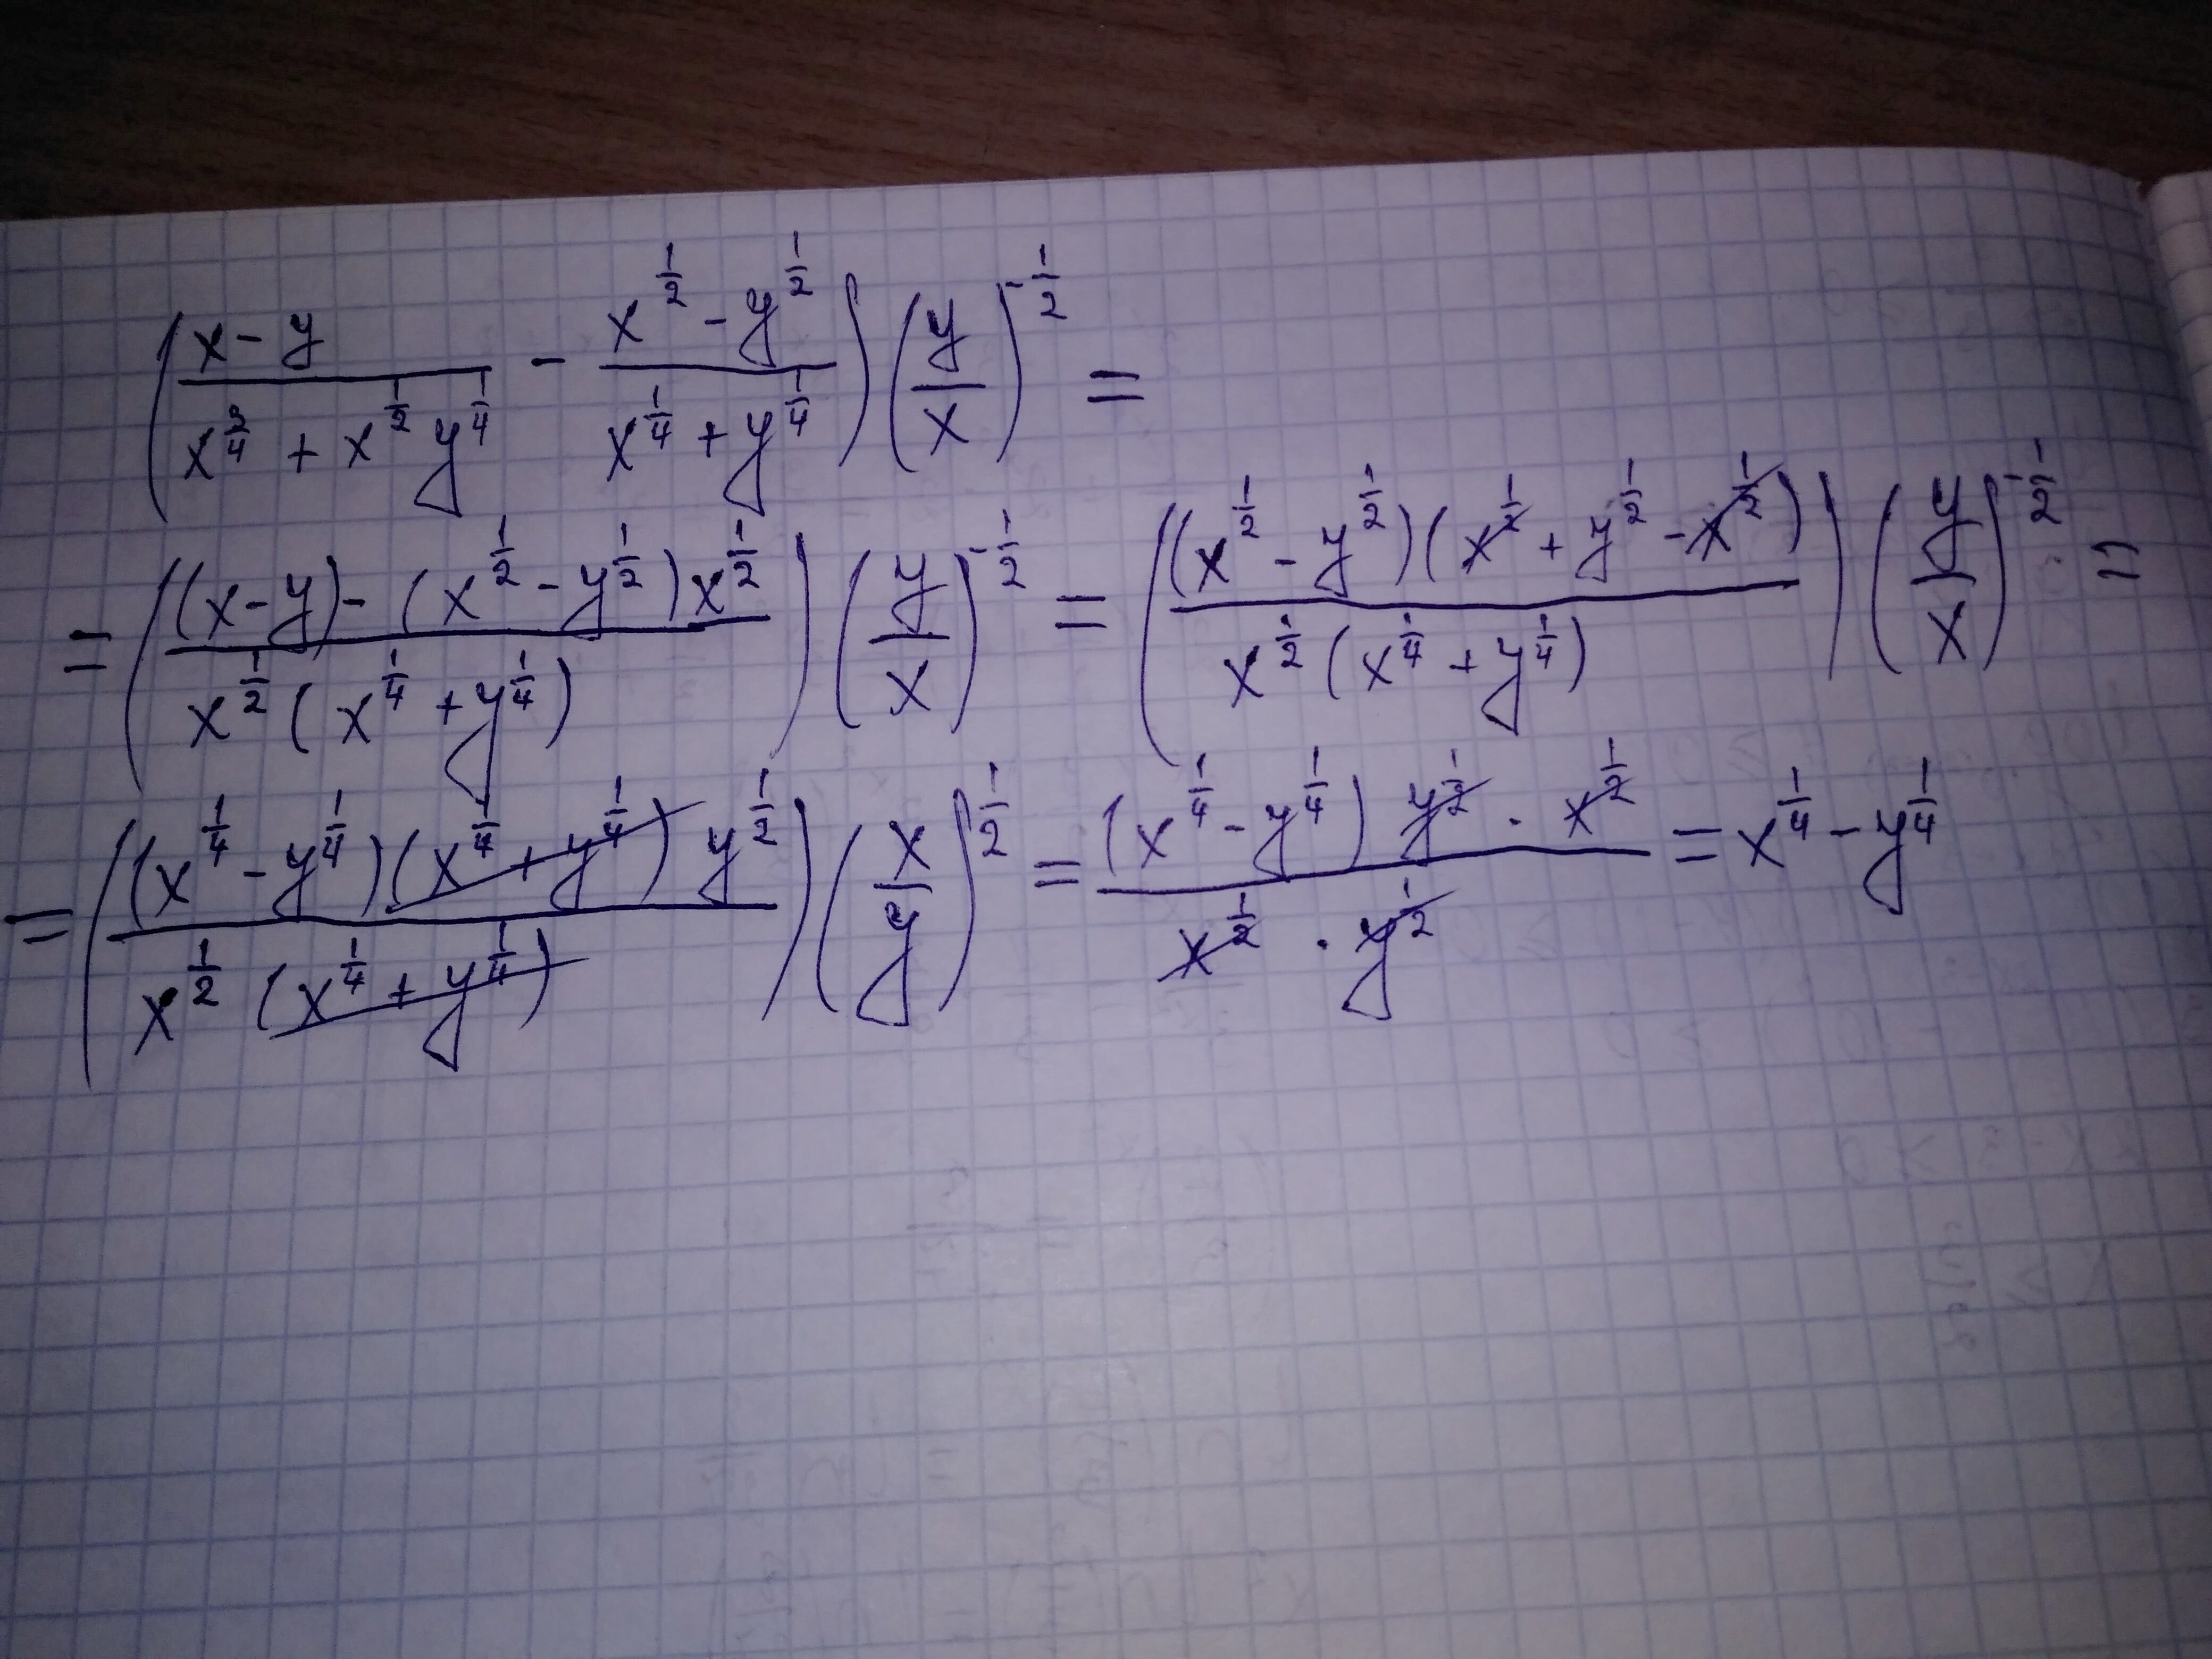 (x-y / (x^(3/4) + x^(1/2) y^(1/4)) - (x^(1/2) - y^(1/2)) / (x^(1/4) + y^(1/4))) (y/x)^(-1/2) =
= (((x-y) - (x^(1/2) - y^(1/2)) x^(1/2)) / (x^(1/2) (x^(1/4) + y^(1/4)))) (y/x)^(-1/2) = (((x^(1/2) - y^(1/2)) (x^(1/2) + y^(1/2) - x^(1/2))) / (x^(1/2) (x^(1/4) + y^(1/4)))) (y/x)^(-1/2) =
= (((x^(1/4) - y^(1/4)) (x^(1/4) + y^(1/4)) y^(1/2)) / (x^(1/2) (x^(1/4) + y^(1/4)))) (x/y)^(1/2) = ((x^(1/4) - y^(1/4)) y^(1/2) · x^(1/2)) / (x^(1/2) · y^(1/2)) = x^(1/4) - y^(1/4)